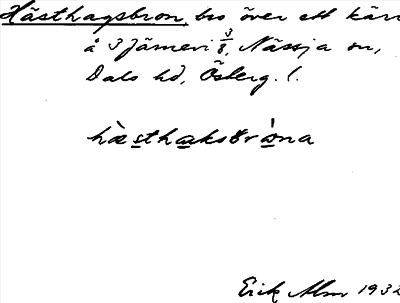 Hästhagsbron, bro över ett kärr
å Jämeri 3/8, Nässja sn,
Dals hd, Österg. l.
hæsthaksbròna
Erik Alm 1932